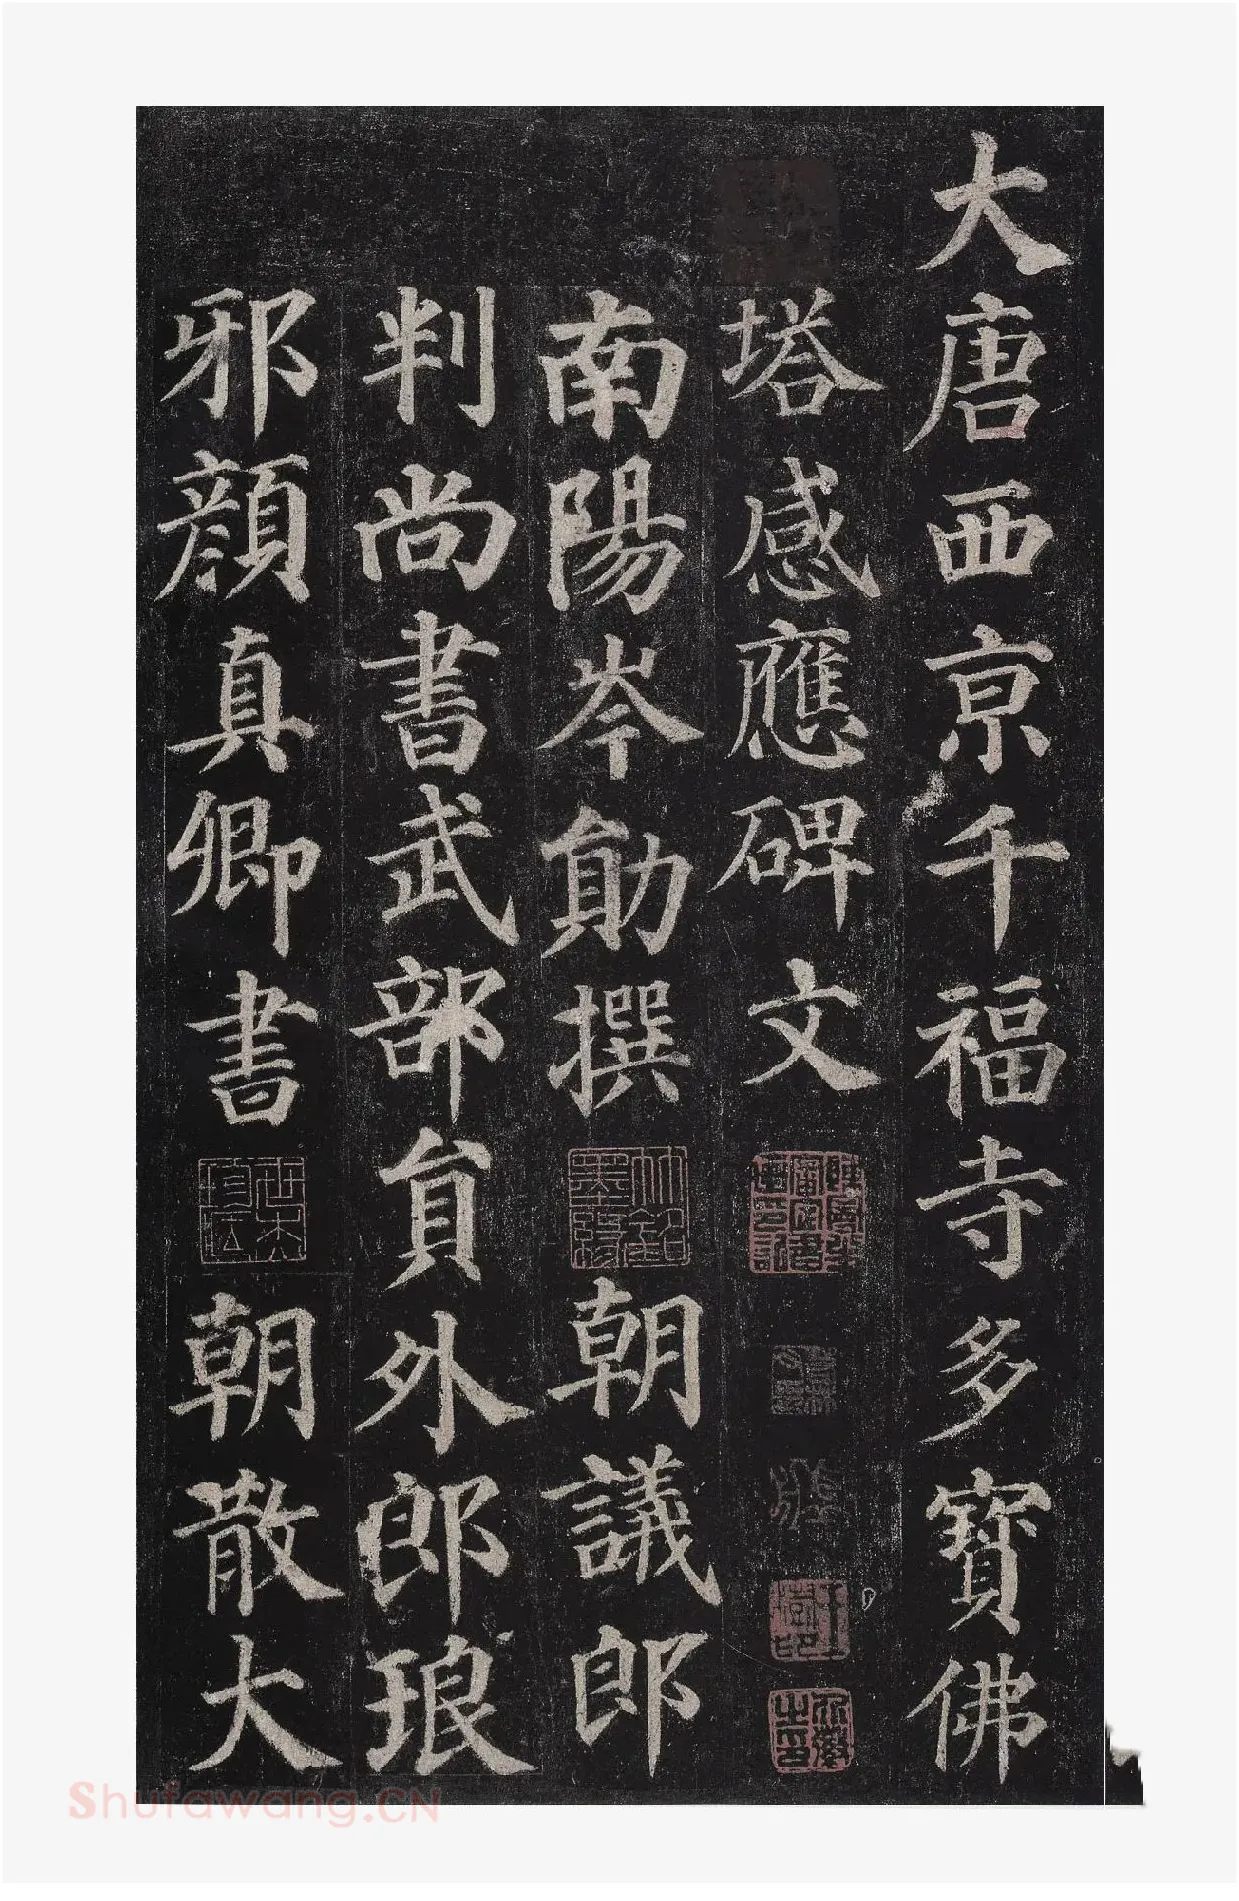 大唐西亰千福寺多寶佛
塔感應碑文
南陽岑勛撰 朝議郎
判尚書武部貟外郎琅
邪顔真卿書 朝散大
Shufawang.CN